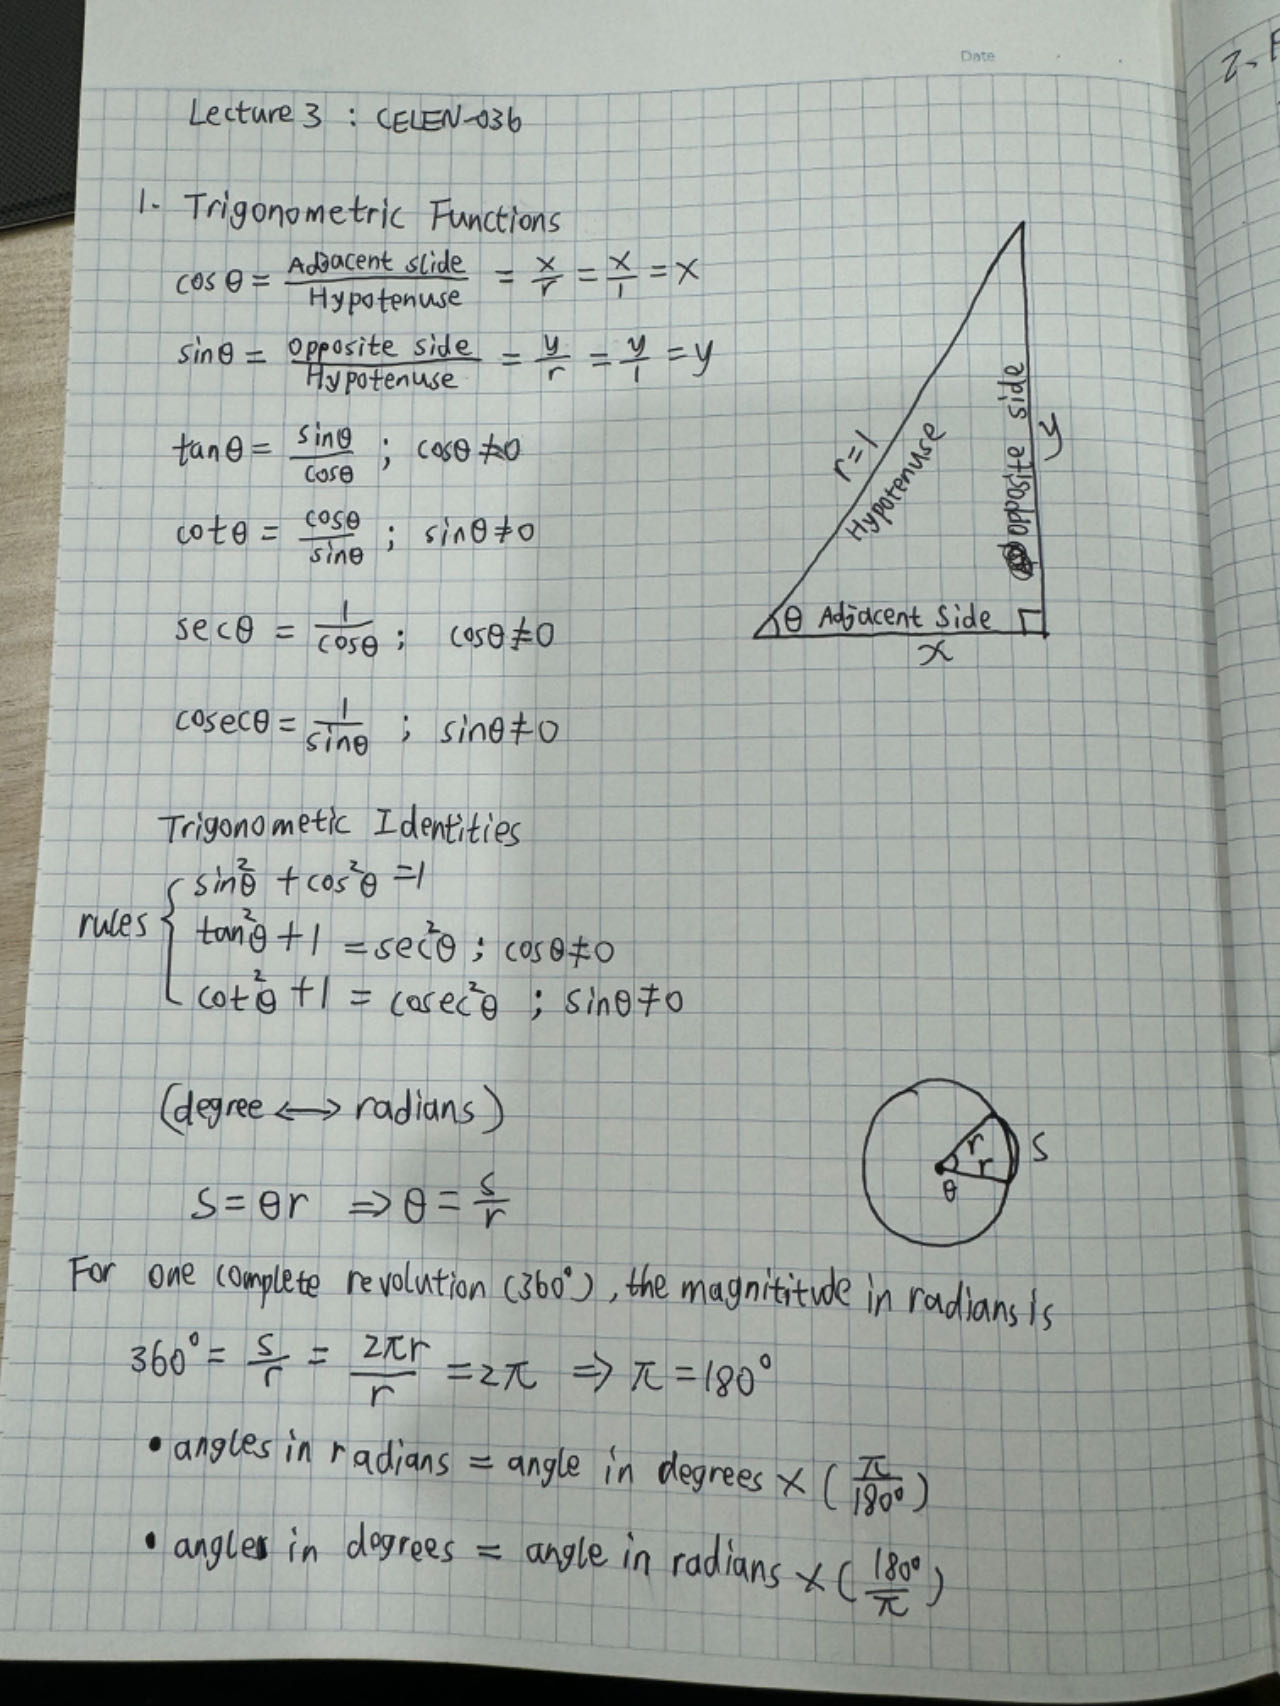 Date
2. F
Lecture 3 : CELEN-036
1. Trigonometric Functions
cosθ = Adjacent slide / Hypotenuse = x/r = x/1 = x
sinθ = opposite side / Hypotenuse = y/r = y/1 = y
tanθ = sinθ/cosθ ; cosθ ≠ 0
cotθ = cosθ/sinθ ; sinθ ≠ 0
secθ = 1/cosθ ; cosθ ≠ 0
cosecθ = 1/sinθ ; sinθ ≠ 0
r=1
Hypotenuse
opposite side
y
θ Adjacent Side
x
Trigonometic Identities
rules
sin²θ + cos²θ = 1
tan²θ + 1 = sec²θ ; cosθ ≠ 0
cot²θ + 1 = cosec²θ ; sinθ ≠ 0
(degree ⟷ radians)
S = θr ⇒ θ = s/r
r
r
θ
S
For one complete revolution (360°), the magnititude in radians is
360° = s/r = 2πr/r = 2π ⇒ π = 180°
• angles in radians = angle in degrees × (π/180°)
• angles in degrees = angle in radians × (180°/π)